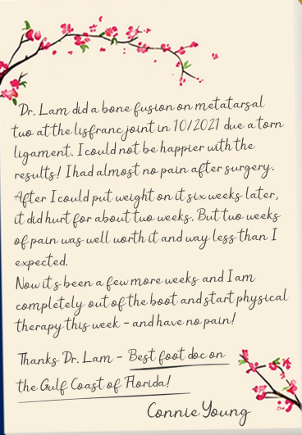 Dr. Lam did a bone fusion on metatarsal
two at the lisfranc joint in 10/2021 due a torn
ligament. I could not be happier with the
results! I had almost no pain after surgery.
After I could put weight on it six weeks later,
it did hurt for about two weeks. But two weeks
of pain was well worth it and way less than I
expected.
Now it's been a few more weeks and I am
completely out of the boot and start physical
therapy this week - and have no pain!
Thanks Dr. Lam - Best foot doc on
the Gulf Coast of Florida!
Connie Young